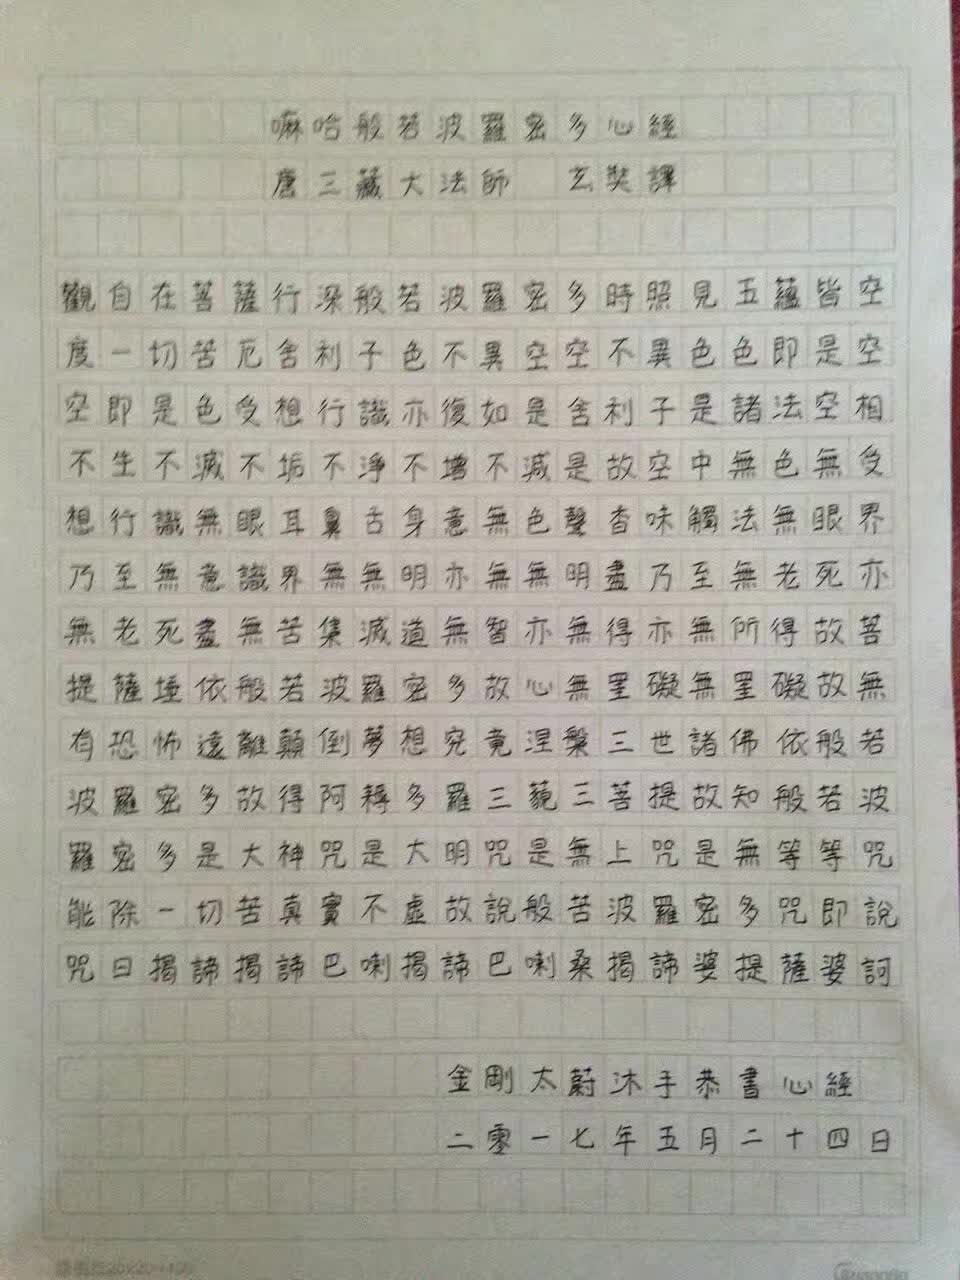 嘛哈般若波羅密多心經
唐三藏大法師 玄奘譯
觀自在菩薩行深般若波羅密多時照見五蘊皆空
度一切苦厄舍利子色不異空空不異色色即是空
空即是色受想行識亦復如是舍利子是諸法空相
不生不滅不垢不淨不增不減是故空中無色無受
想行識無眼耳鼻舌身意無色聲香味觸法無眼界
乃至無意識界無無明亦無無明盡乃至無老死亦
無老死盡無苦集滅道無智亦無得亦無所得故菩
提薩埵依般若波羅密多故心無罣礙無罣礙故無
有恐怖遠離顛倒夢想究竟涅槃三世諸佛依般若
波羅密多故得阿耨多羅三藐三菩提故知般若波
羅密多是大神咒是大明咒是無上咒是無等等咒
能除一切苦真實不虛故說般苦波羅密多咒即說
咒曰揭諦揭諦巴喇揭諦巴喇桑揭諦婆提薩婆訶
金剛太蔚沐手恭書心經
二零一七年五月二十四日